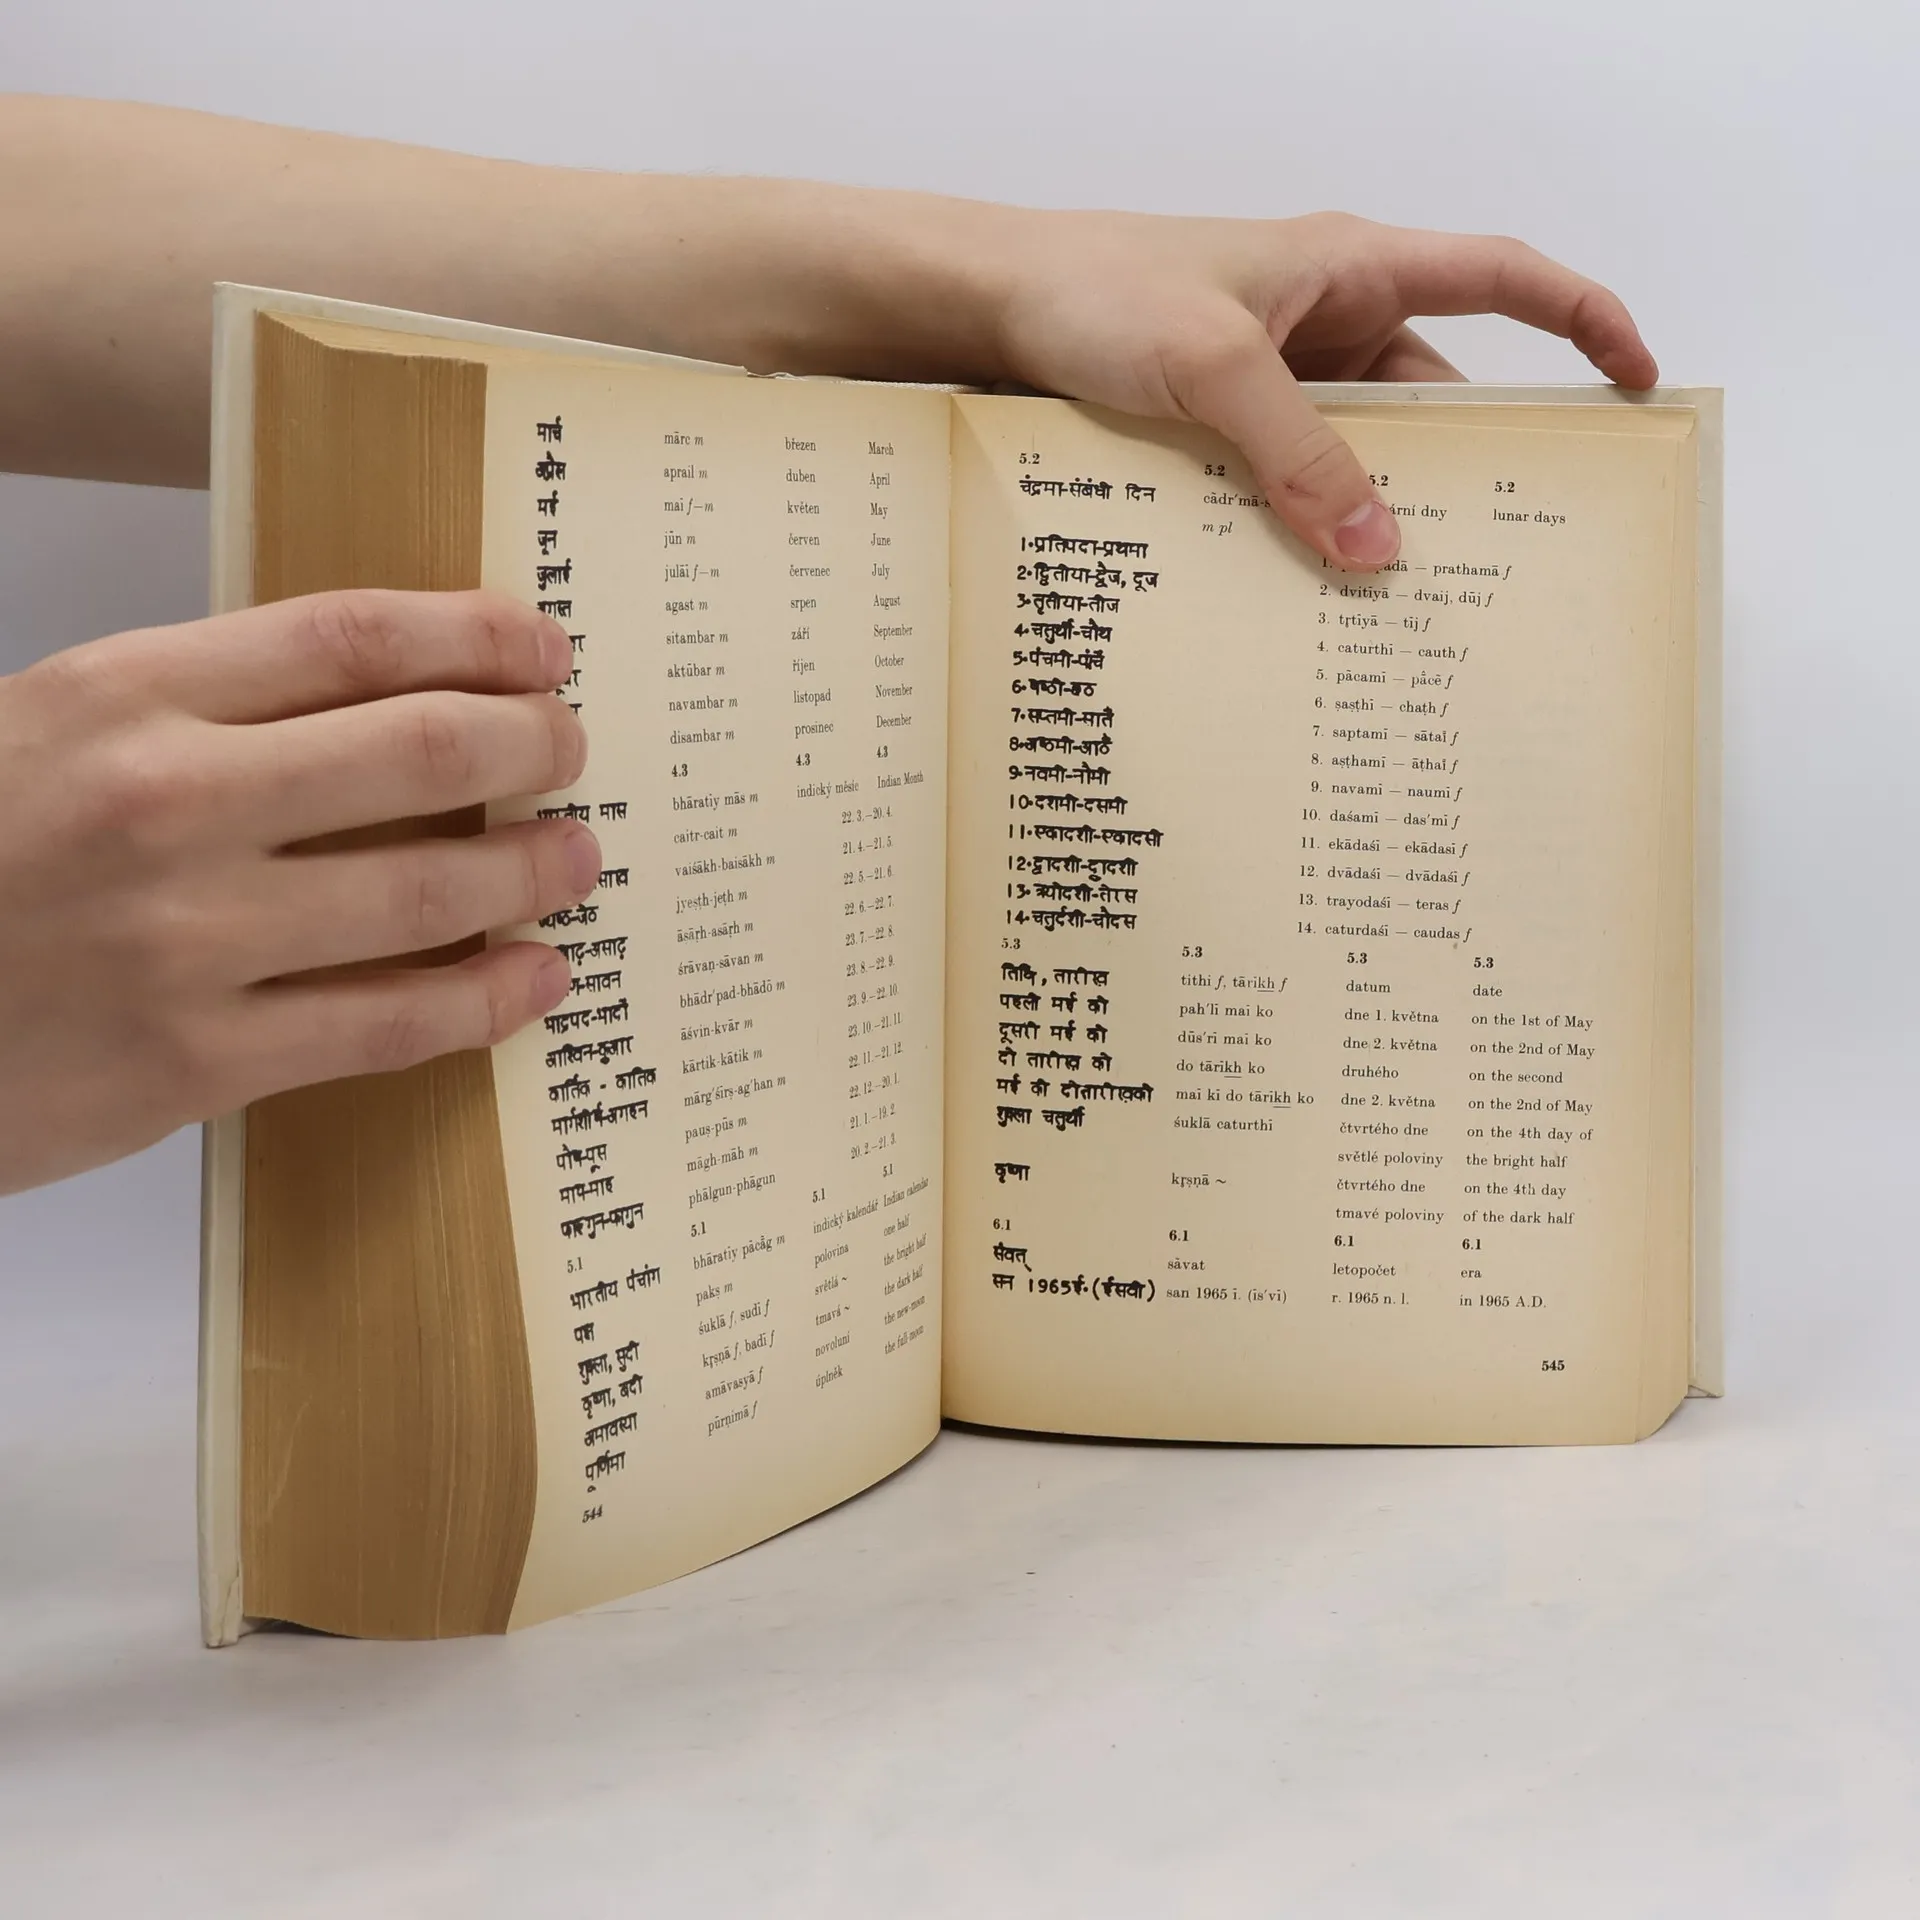 मार्च mārc m březen March
अप्रैल aprail m duben April
मई maī f—m květen May
जून jūn m červen June
जुलाई julāī f—m červenec July
agast m srpen August
sitambar m září September
aktūbar m říjen October
navambar m listopad November
disambar m prosinec December
4.3 4.3 4.3
मास bhāratīy mās m indický měsíc Indian Month
caitr-cait m 22. 3.—20. 4.
vaiśākh-baisākh m 21. 4.—21. 5.
jyeṣṭh-jeṭh m 22. 5.—21. 6.
āsāṛh-asāṛh m 22. 6.—22. 7.
śrāvaṇ-sāvan m 23. 7.—22. 8.
भाद्रपद-भादों bhādr'pad-bhādõ m 23. 8.—22. 9.
आश्विन-कुआर āśvin-kvār m 23. 9.—22. 10.
कार्तिक - कातिक kārtik-kātik m 23. 10.—21. 11.
मार्गशीर्ष-अगहन mārg'śīrṣ-ag'han m 22. 11.—21. 12.
पौष-पूस pauṣ-pūs m 22. 12.—20. 1.
माघ-माह māgh-māh m 21. 1.—19. 2.
फाल्गुन-फागुन phālgun-phāgun 20. 2.—21. 3.
5.1 5.1 5.1 5.1
भारतीय पंचांग bhāratīy pācāg m indický kalendář Indian calendar
पक्ष pakṣ m polovina one half
शुक्ला, सुदी śuklā f, sudī f světlá ~ the bright half
कृष्णा, बदी kṛṣṇā f, badī f tmavá ~ the dark half
अमावस्या amāvasyā f novoluní the new-moon
पूर्णिमा pūrṇimā f úplněk the full-moon
544
5.2 5.2 5.2 5.2
चंद्रमा-संबंधी दिन lunar days
m pl dny
1. प्रतिपदा-प्रथमा 1. — prathamā f
2. द्वितीया-द्वैज, दूज 2. dvitīyā — dvaij, dūj f
3. तृतीया-तीज 3. tṛtīyā — tīj f
4. चतुर्थी-चौथ 4. caturthī — cauth f
5. पंचमी-पांचें 5. pācamī — pā̃cẽ f
6. षष्ठी-छठ 6. ṣaṣṭhī — chaṭh f
7. सप्तमी-सातैं 7. saptamī — sātaĩ f
8. अष्ठमी-आठैं 8. aṣṭhamī — āṭhaĩ f
9. नवमी-नौमी 9. navamī — naumī f
10. दशमी-दसमी 10. daśamī — das'mī f
11. एकादशी-एकादसी 11. ekādaśī — ekādasī f
12. द्वादशी-द्वादशी 12. dvādaśī — dvādaśī f
13. त्रयोदशी-तेरस 13. trayodaśī — teras f
14. चतुर्दशी-चौदस 14. caturdaśī — caudas f
5.3 5.3 5.3 5.3
तिथि, तारीख़ tithi f, tārīkh f datum date
पहली मई को pah'lī maī ko dne 1. května on the 1st of May
दूसरी मई को dūs'rī maī ko dne 2. května on the 2nd of May
दो तारीख़ को do tārīkh ko druhého on the second
मई की दो तारीख़ को maī kī do tārīkh ko dne 2. května on the 2nd of May
शुक्ला चतुर्थी śuklā caturthī čtvrtého dne on the 4th day of
světlé poloviny the bright half
कृष्णा kṛṣṇā ~ čtvrtého dne on the 4th day
tmavé poloviny of the dark half
6.1 6.1 6.1 6.1
संवत् sāvat letopočet era
सन 1965 ई. (ईसवी) san 1965 ī. (īs'vī) r. 1965 n. l. in 1965 A.D.
545